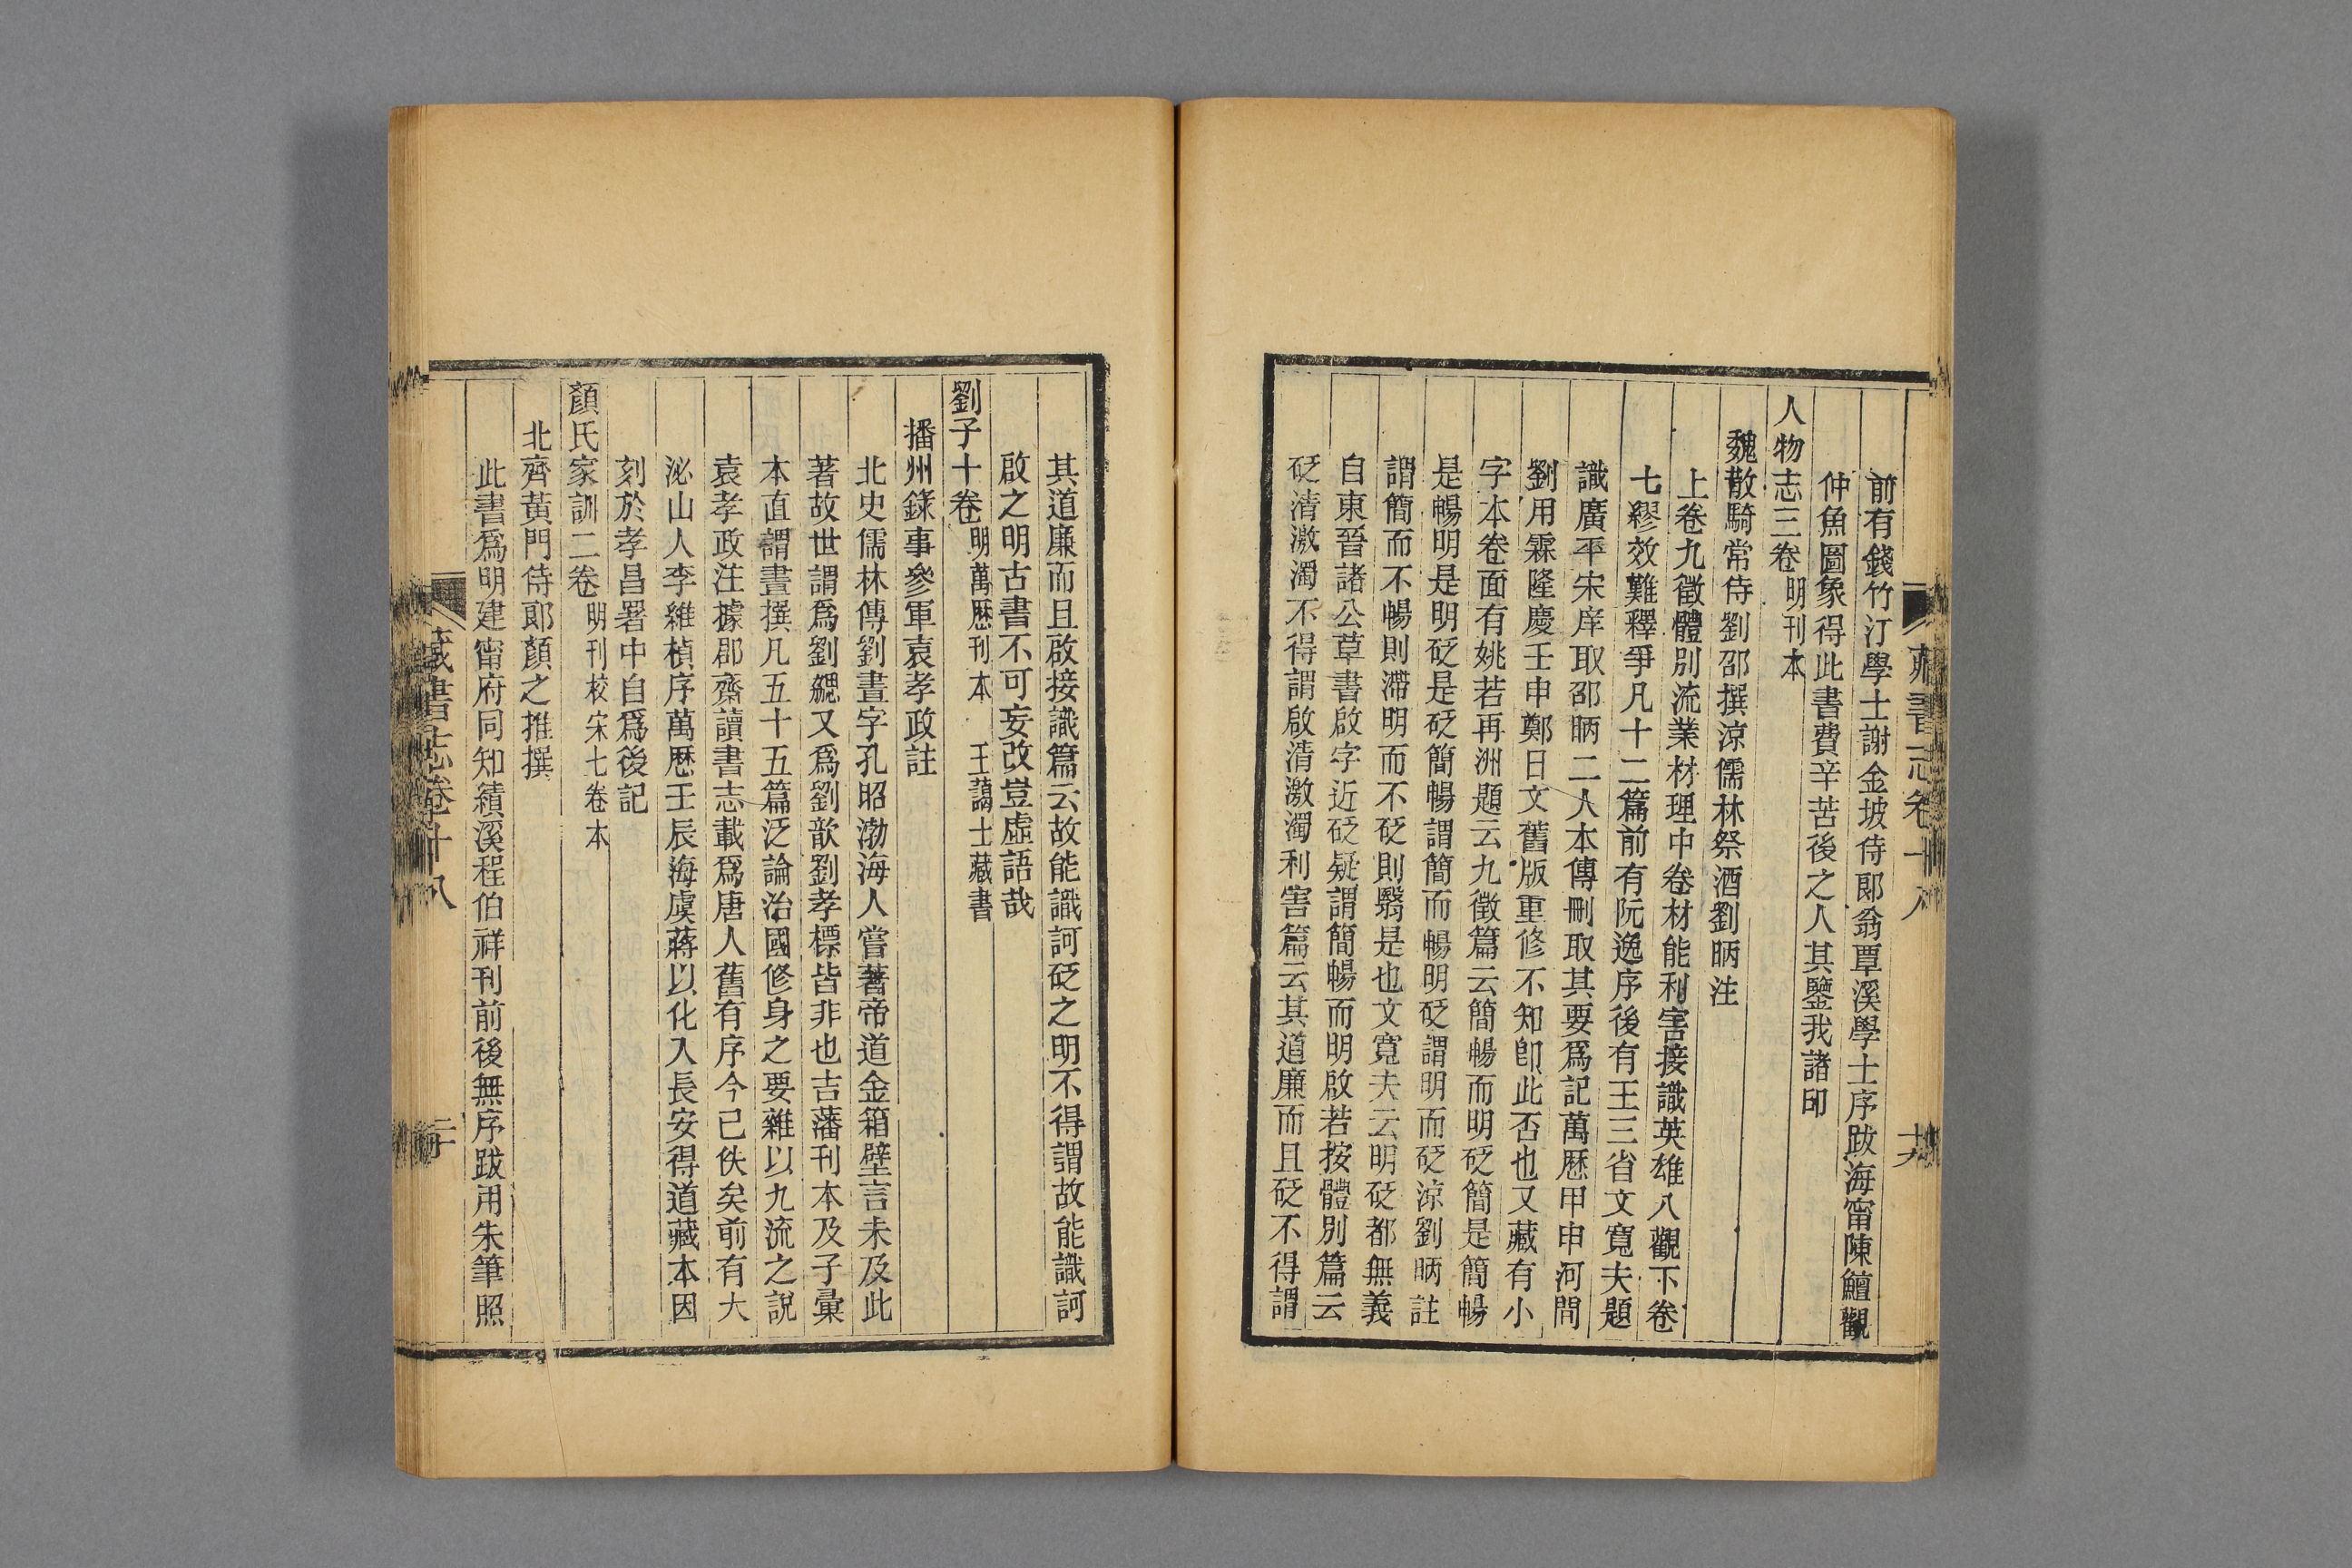 藏書志卷十八
十九
前有錢竹汀學士謝金坡侍郞翁覃溪學士序跋海甯陳鱣觀
仲魚圖象得此書費辛苦後之人其鑒我諸印
人物志三卷明刊本
魏散騎常侍劉邵撰涼儒林祭酒劉昞注
上卷九徵體別流業材理中卷材能利害接識英雄八觀下卷
七繆效難釋爭凡十二篇前有阮逸序後有王三省文寬夫題
識廣平宋庠取邵昞二人本傳刪取其要爲記萬歷甲申河間
劉用霖隆慶壬申鄭旻文舊版重修不知卽此否也又藏有小
字本卷面有姚若再洲題云九徵篇云簡暢而明砭簡是簡暢
是暢明是明砭是砭簡暢謂簡而暢明砭謂明而砭涼劉昞註
謂簡而不暢則滯明而不砭則翳是也文寬夫云明砭都無義
自東晉諸公草書啟字近砭疑謂簡暢而明啟若按體別篇云
砭清激濁不得謂啟清激濁利害篇云其道廉而且砭不得謂
其道廉而且啟接識篇云故能識訶砭之明不得謂故能識訶
啟之明古書不可妄改豈虛語哉
劉子十卷明萬歷刊本　王藹士藏書
播州錄事參軍袁孝政註
北史儒林傳劉晝字孔昭渤海人嘗著帝道金箱壁言未及此
著故世謂爲劉勰又爲劉歆劉孝標皆非也吉藩刊本及子彙
本直謂晝撰凡五十五篇泛論治國修身之要雜以九流之說
袁孝政注據郡齋讀書志載爲唐人舊有序今已佚矣前有大
泌山人李維楨序萬歷壬辰海虞蔣以化入長安得道藏本因
刻於孝昌署中自爲後記
顏氏家訓二卷明刊校宋七卷本
北齊黃門侍郞顏之推撰
此書爲明建甯府同知績溪程伯祥刊前後無序跋用朱筆照
藏書志卷十八
二十